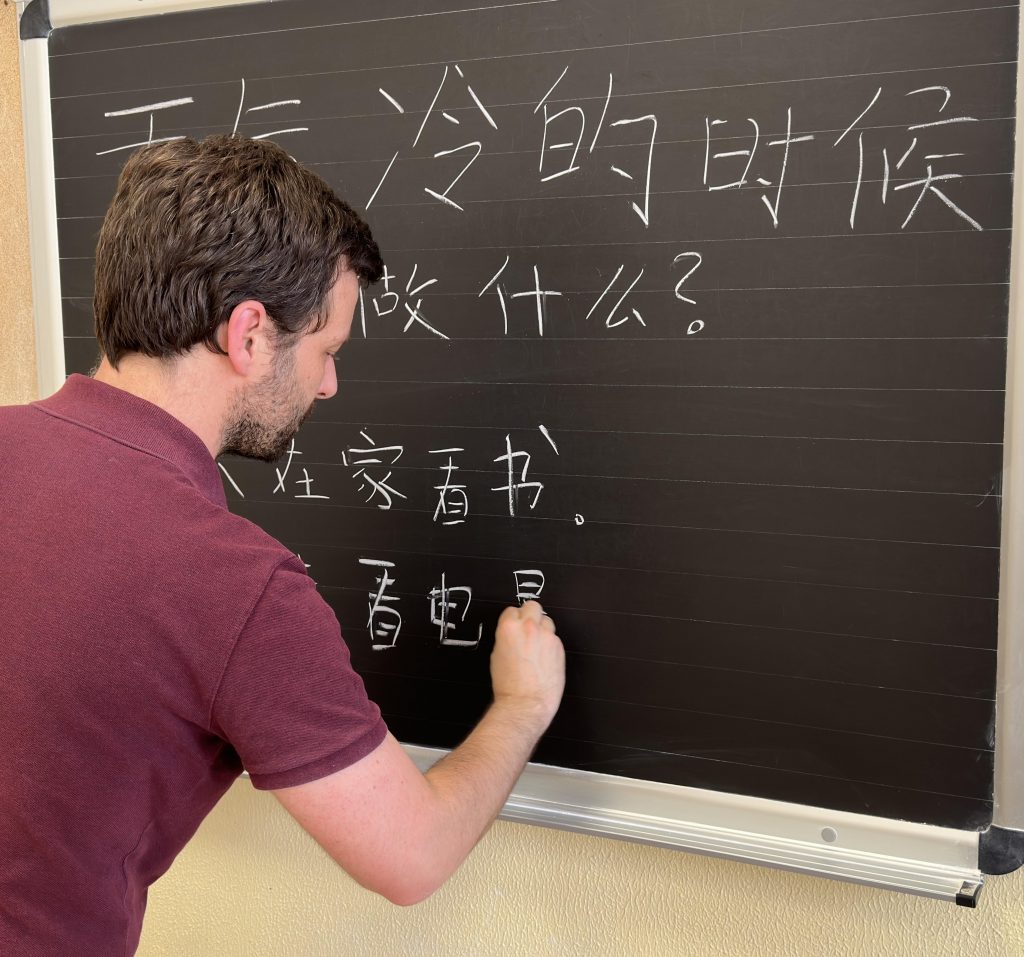 天气冷的时候
做什么?
在家看书。
看电